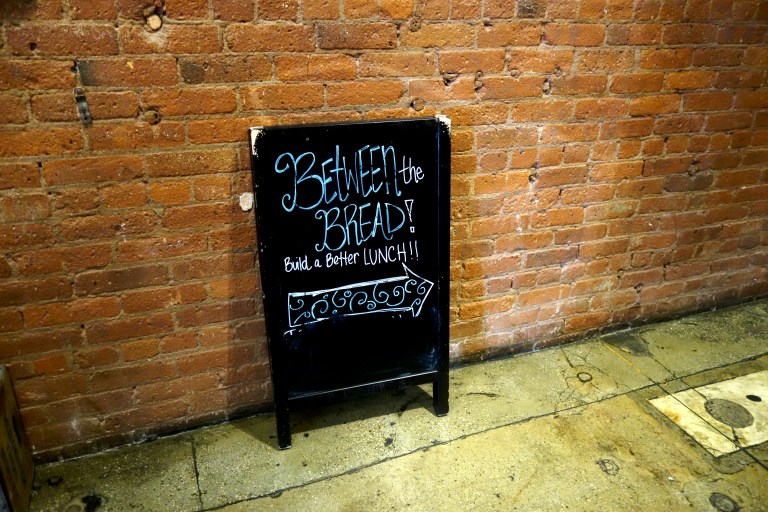 BETWEEN the
BREAD!
Build a Better LUNCH!!